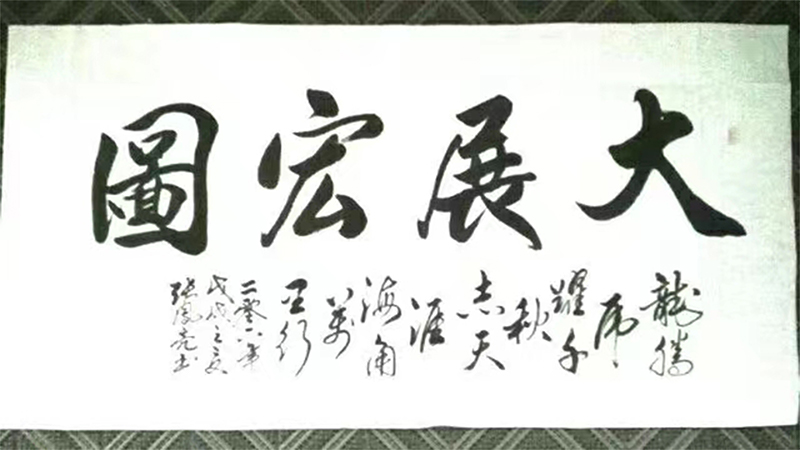 大展宏圖
龍騰
虎
躍千
秋
志天
涯
海角
萬
里行
二零一八年
戊戌之夏
張鳳亮书